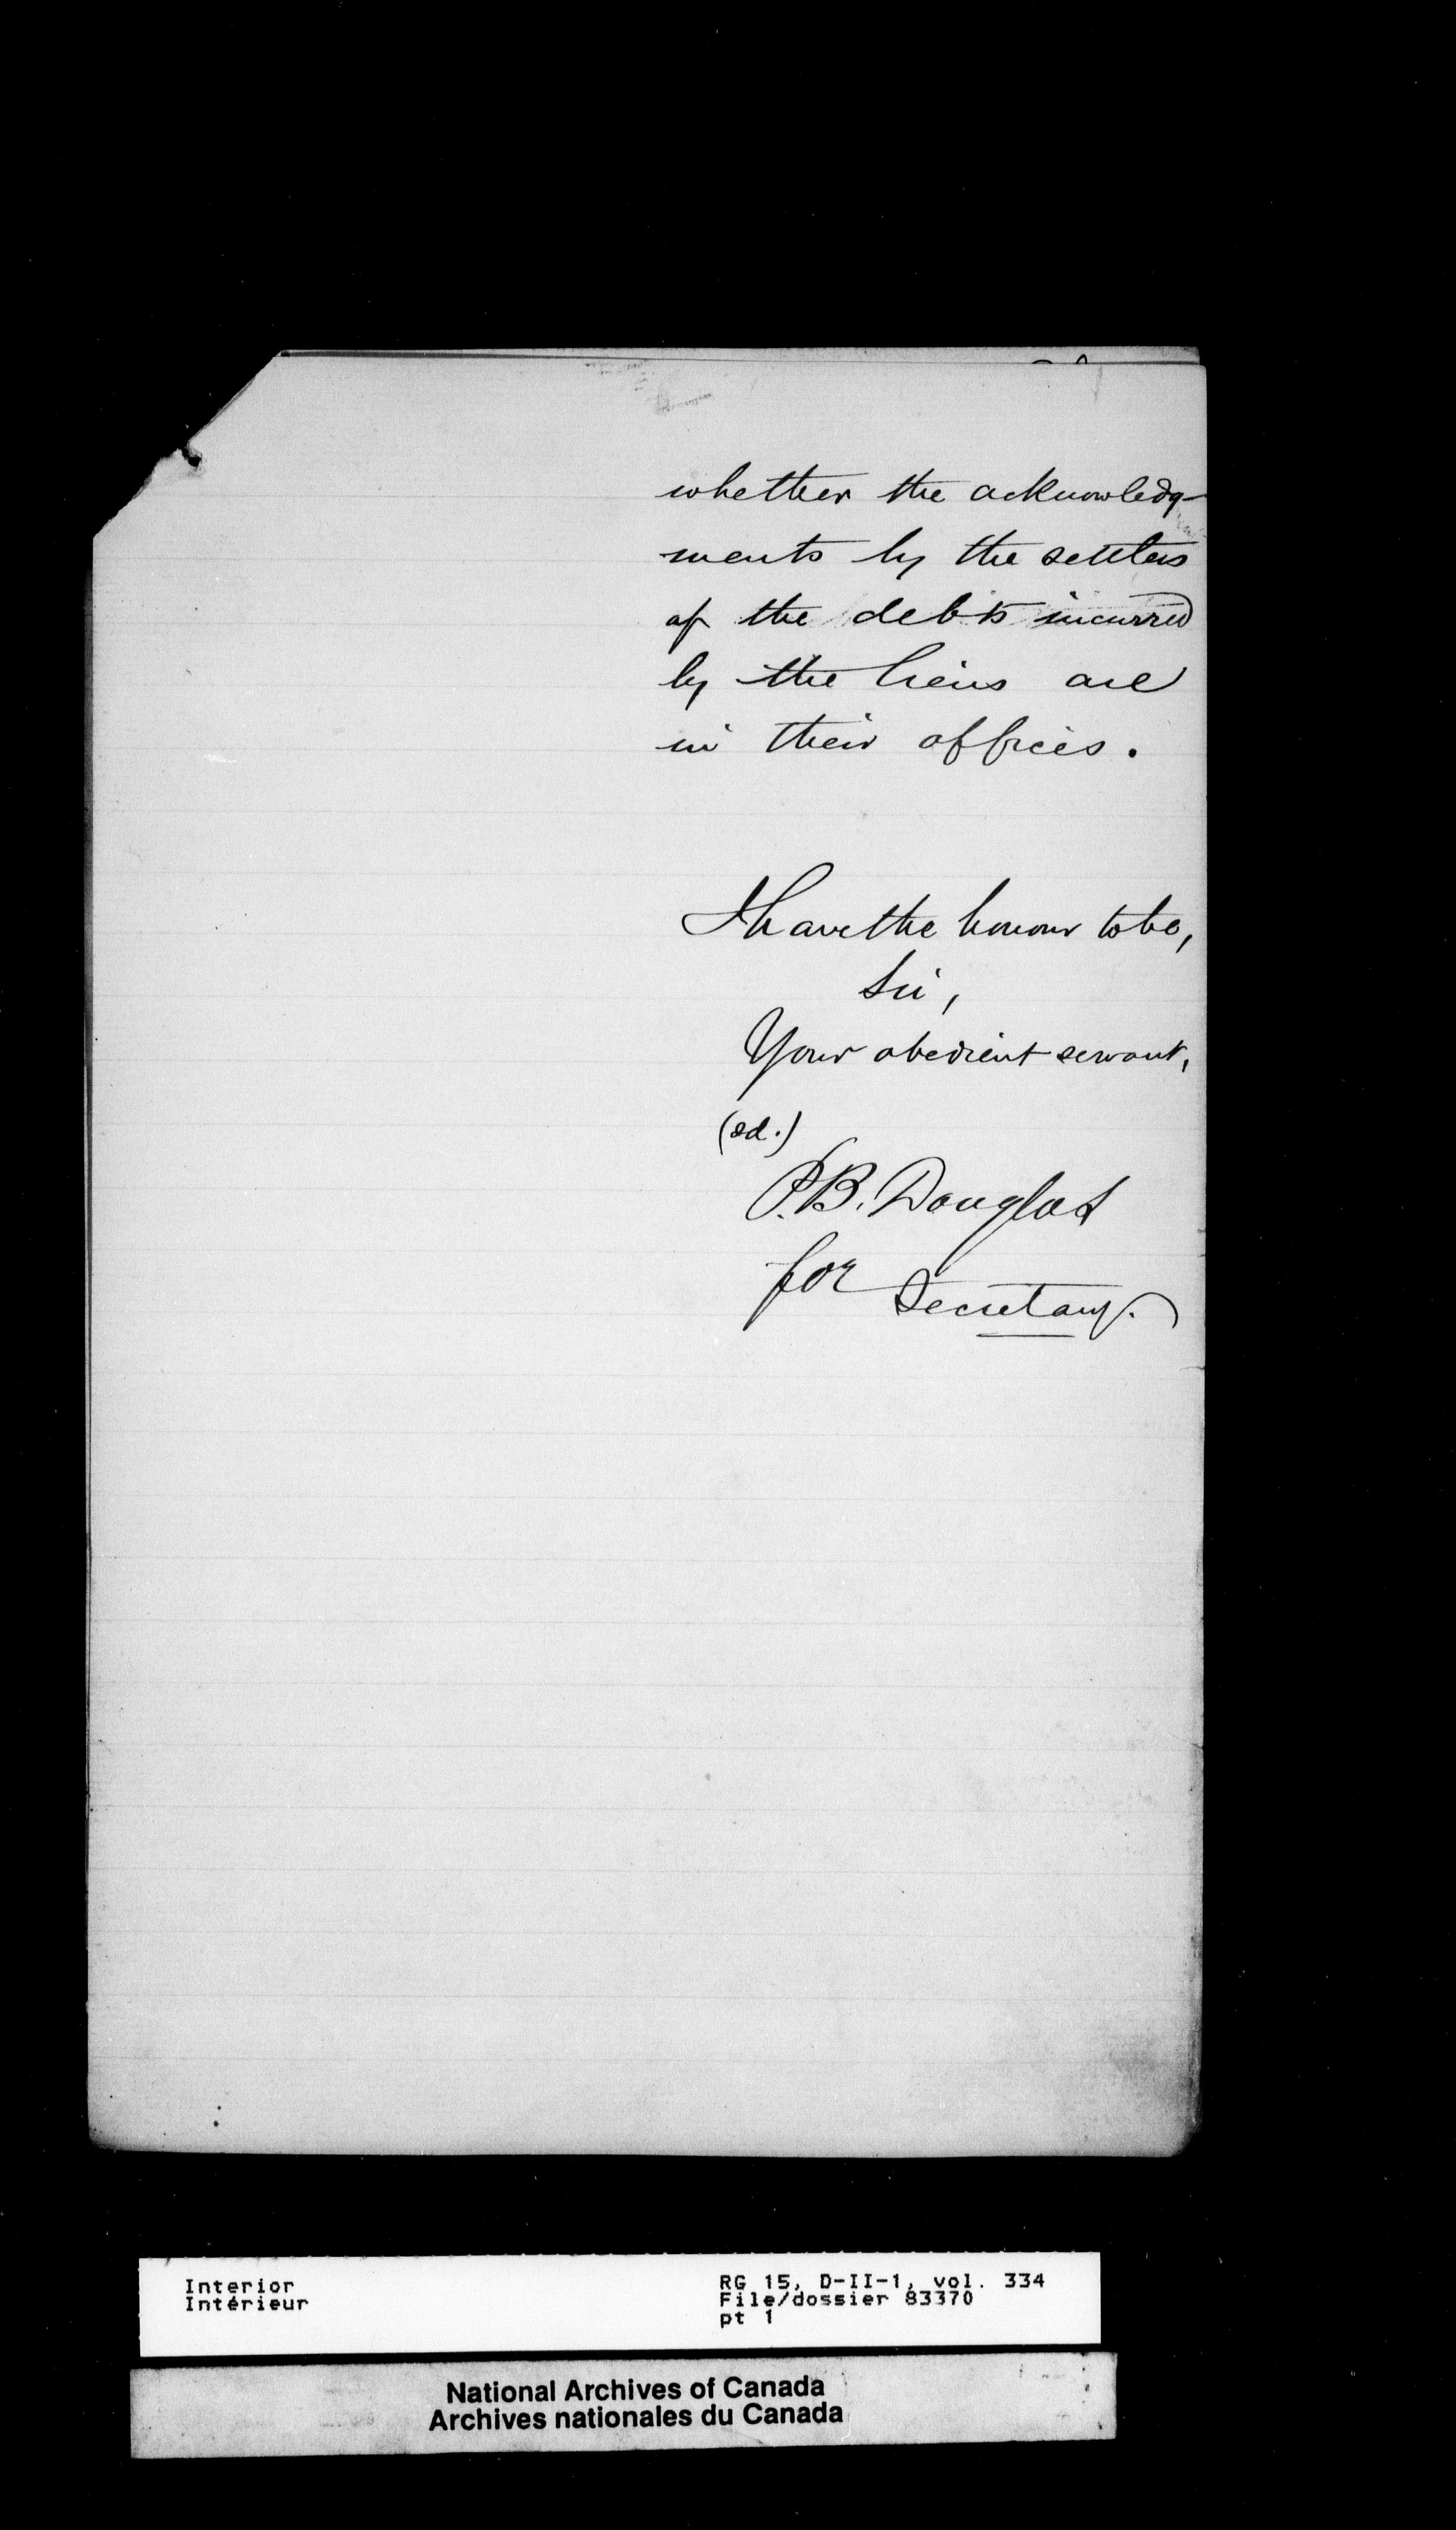 whether the acknowledg-
ments by the settlers
of the debts incurred
by the liens are
in their offices.
I have the honour to be,
Sir,
Your obedient servant,
(sd.)
P.B. Douglas
for Secretary.
Interior
Intérieur
RG 15, D-II-1, vol. 334
File/dossier 83370
pt 1
National Archives of Canada
Archives nationales du Canada